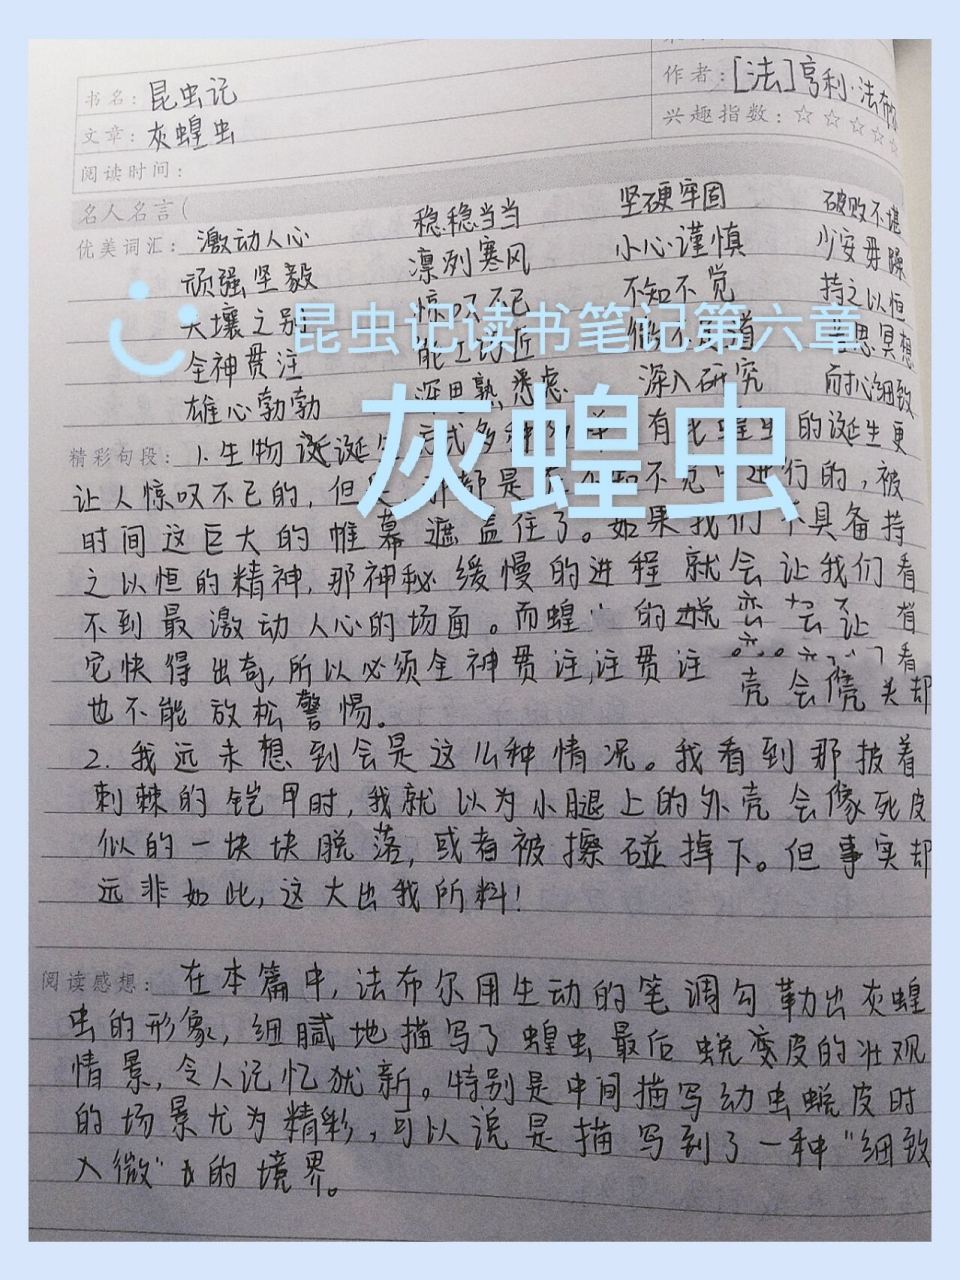 书名：昆虫记
作者：[法]亨利·法布
文章：灰蝗虫
兴趣指数：☆☆☆☆☆
阅读时间：
名人名言（
优美词汇：激动人心 稳稳当当 坚硬牢固 破败不堪
顽强坚毅 凛冽寒风 小心谨慎 少安毋躁
天壤之别 惊叹不已 不知不觉 持之以恒
昆虫记读书笔记第六章
全神贯注 能工巧匠 冥想
雄心勃勃 深思熟悉虑 深入研究 耐心细致
灰蝗虫
精彩句段：1.生物诞诞 方式多种多样 有 的诞生更
让人惊叹不已的，但 都是 不知不觉中进行的，被
时间这巨大的帷幕遮盖住了。如果我们不具备持
之以恒的精神，那神秘缓慢的进程就会让我们看
不到最激动人心的场面。而蝗 的蜕 会 让
它快得出奇，所以必须全神贯注，注贯注 看
壳会像 头却
也不能放松警惕。
2.我远未想到会是这么种情况。我看到那披着
刺棘的铠甲时，我就以为小腿上的外壳会像死皮
似的一块块脱落，或者被擦碰掉下。但事实却
远非如此，这大出我所料！
阅读感想：在本篇中，法布尔用生动的笔调勾勒出灰蝗
虫的形象，细腻地描写了蝗虫最后蜕变皮的壮观
情景，令人记忆犹新。特别是中间描写幼虫蜕皮时
的场景尤为精彩，可以说是描写到了一种“细致
入微”的境界。